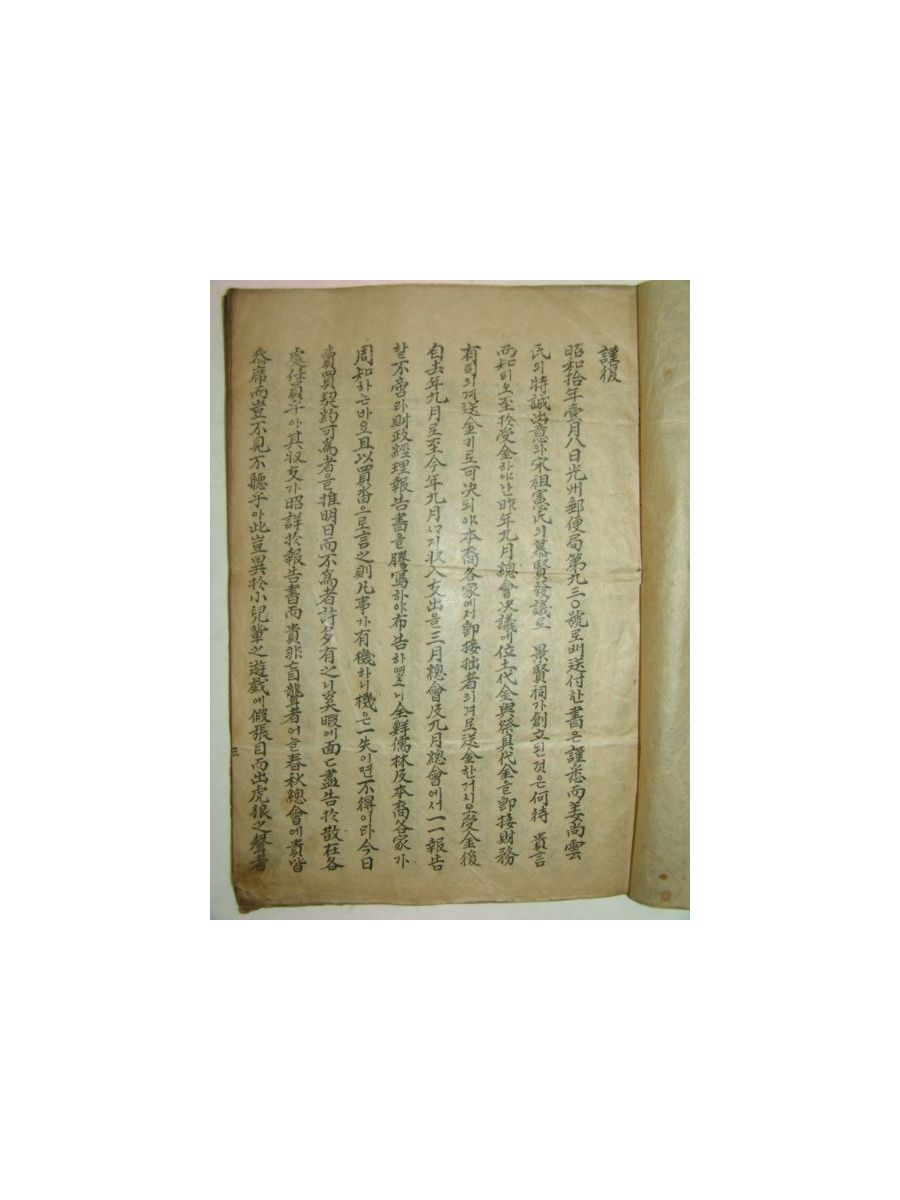 謹復
昭和拾年壹月八日光州郵便局第九三〇號로以送付한書은謹悉而姜尚雲
民의特誠出意와宋祖憲氏의慕賢發議로 景賢祠가創立된것은何待 貴言
而知비오至於受金하야난昨年九月總會決議에位土代金與祭具代金을卽接財務
有司의게送金키로可決되야本裔各家에서卽接拙者의게로送金한거시오受金後
自去年九月로至今年九月싸지收入支出을三月總會及九月總會에서一一報告
할不啻라財政經理報告書을謄寫하야布告하엿스니全鮮儒林及本裔各家가
周知하는바오且以買畓으로言之則凡事가有機하니機은一失이면不得이라今日
賣買契約可爲者을推明日而不爲者許多有之니奚暇에面亡盡告於散在各
處任員乎아其収支가昭詳於報告書而貴非盲聾者어늘春秋總會에貴皆
叅席而豈不見不聽乎아此豈異於小兒輩之遊戱에假張目而出虎狼之聲者
三